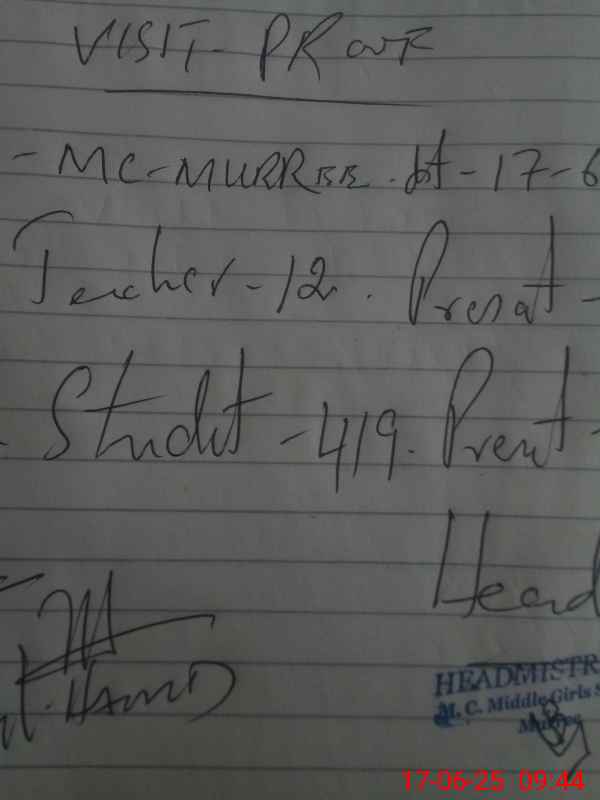 VISIT- PROOF
- MC-MURREE. dt - 17-6
Teacher - 12. Present -
- Studnt - 419. Present -
Head
HAMID
HEADMISTR
M. C. Middle Girls S
Murree
17-06-25 09:44